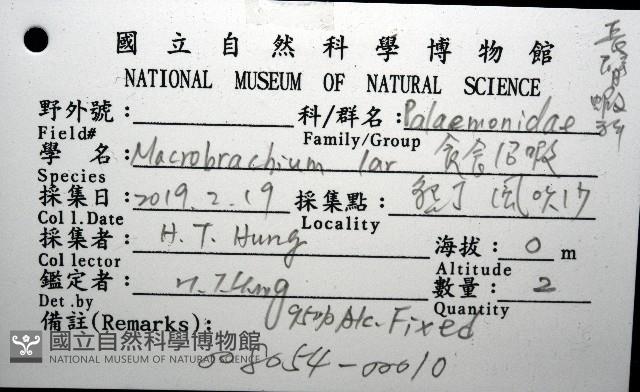 國立自然科學博物館
NATIONAL MUSEUM OF NATURAL SCIENCE
長臂蝦科
野外號: 科/群名: Palaemonidae
Field# Family/Group
學 名: Macrobrachium lar 貪食沼蝦
Species
採集日: 2019.2.19 採集點: 墾丁 風吹沙
Coll.Date Locality
採集者: H. T. Hung 海拔: 0 m
Collector Altitude
鑑定者: H. T. Hung 數量: 2
Det.by Quantity
備註(Remarks): 95% Alc. Fixed
國立自然科學博物館
NATIONAL MUSEUM OF NATURAL SCIENCE
008054-00010